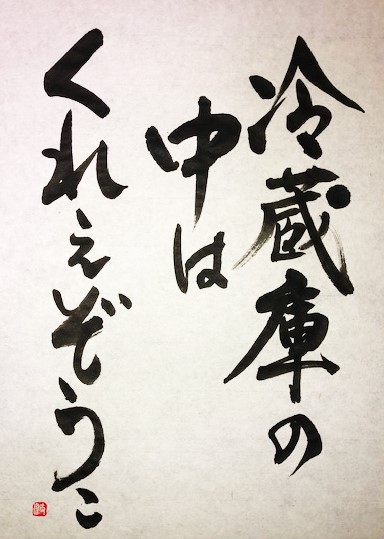 冷蔵庫の
中は
くれぇぞうこ